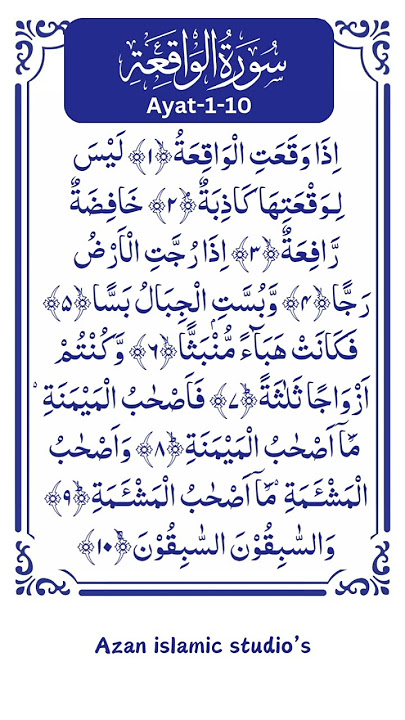 سُورَةُ الْوَاقِعَةِ
Ayat-1-10
اِذَا وَقَعَتِ الْوَاقِعَةُ ﴿۱﴾ لَيْسَ
لِوَقْعَتِهَا كَاذِبَةٌ ﴿۲﴾ خَافِضَةٌ
رَّافِعَةٌ ﴿۳﴾ اِذَا رُجَّتِ الْاَرْضُ
رَجًّا ﴿۴﴾ وَّبُسَّتِ الْجِبَالُ بَسًّا ﴿۵﴾
فَكَانَتْ هَبَآءً مُّنْۢبَثًّا ﴿۶﴾ وَّكُنْتُمْ
اَزْوَاجًا ثَلٰثَةً ﴿۷﴾ فَاَصْحٰبُ الْمَيْمَنَةِ ۙ
مَاۤ اَصْحٰبُ الْمَيْمَنَةِ ﴿۸﴾ وَاَصْحٰبُ
الْمَشْـَٔمَةِ ۙ مَاۤ اَصْحٰبُ الْمَشْـَٔمَةِ ﴿۹﴾
وَالسّٰبِقُوْنَ السّٰبِقُوْنَ ﴿۱۰﴾
Azan islamic studio's